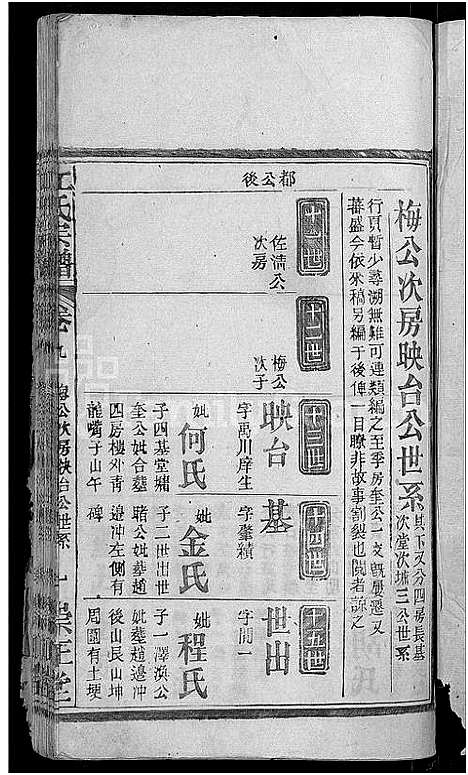 梅公次房映台公世系
其下又分四房長基
次堂次墉三公世系
行頁暫少尋溯無難可連類編之至季房奎公一支既屢遷又
蕃盛今依來稿另編于後俾一目瞭非故事割裂也閱者諒之
都公後
十一世
佐清公
次房
十二世
梅公
次子
十三世
映台
字禹川庠生
妣何氏
子四基堂墉
奎公妣合墓
四房樓外青
龍嘴子山午
十四世
基
字肇績
妣金氏
子二世出世
賭公妣墓趙
邉冲左側有
碑
十五世
世出
字開一
妣程氏
子一澤濱公
妣墓趙邉冲
後山長山坤
周圍有土埂
氏宗譜
卷九
梅公次房映台公世系